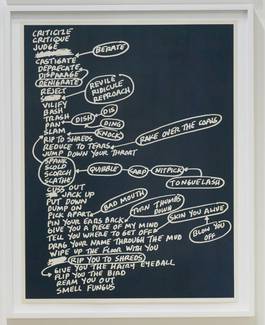 CRITICIZE
CRITIQUE
JUDGE
BERATE
CASTIGATE
DEPRECATE
DISPARAGE
DENIGRATE
REVILE
RIDICULE
REPROACH
REJECT
VILIFY
BASH
TRASH
PAN
SLAM
DISH
DIS
DING
KNOCK
RAKE OVER THE COALS
RIP TO SHREDS
REDUCE TO TEARS
JUMP DOWN YOUR THROAT
SPANK
SCOLD
SCORCH
SCATHE
QUIBBLE
CARP
NITPICK
TONGUELASH
CUSS OUT
JACK UP
PUT DOWN
DUMP ON
PICK APART
BAD MOUTH
TURN THUMBS DOWN
SKIN YOU ALIVE
BLOW YOU OFF
PIN YOUR EARS BACK
GIVE YOU A PIECE OF MY MIND
TELL YOU WHERE TO GET OFF
DRAG YOUR NAME THROUGH THE MUD
WIPE UP THE FLOOR WITH YOU
RIP YOU TO SHREDS
GIVE YOU THE HAIRY EYEBALL
FLIP YOU THE BIRD
REAM YOU OUT
SMELL FUNGUS